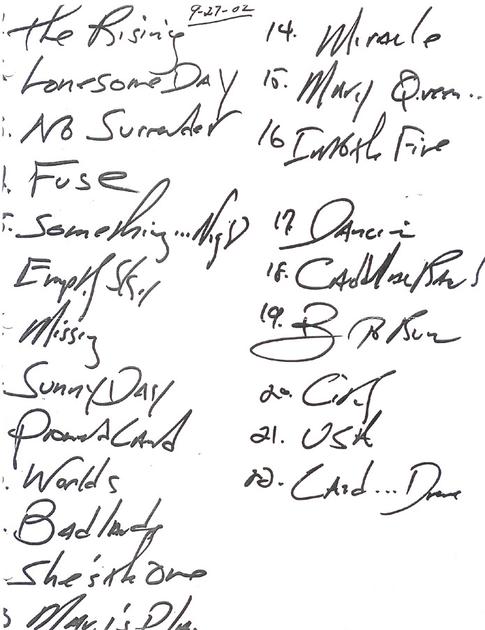 9-27-02
the Rising
Lonesome Day
No Surrender
Fuse
Something...Night
Empty Sky
Missing
Sunny Day
Promised Land
Worlds
Badlands
She's the One
Mary's Pla.
14. Miracle
15. Mary Queen..
16 Into the Fire
17. Dancin
18. Cadillac Ranch
19. B to Run
20. City
21. USA
22. Land...Dreams